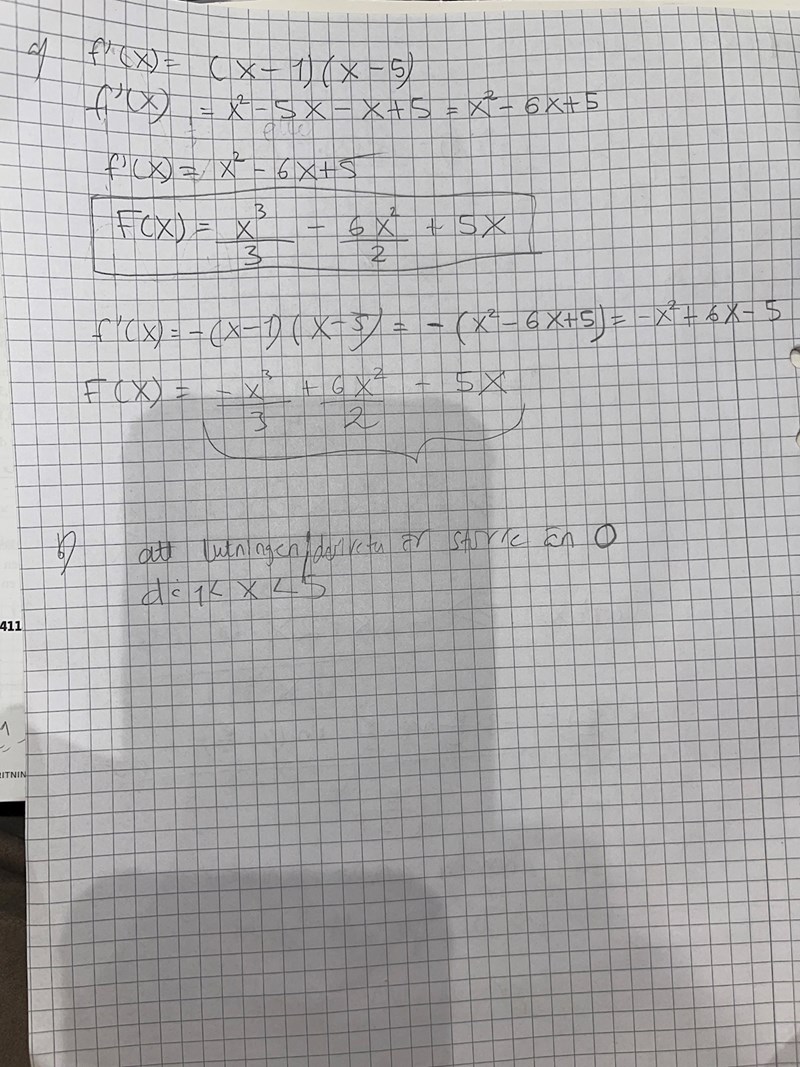 a) f'(x) = (x-1)(x-5)
f'(x) = x² - 5x - x + 5 = x² - 6x + 5
f'(x) = x² - 6x + 5
F(x) = x³/3 - 6x²/2 + 5x
f'(x) = -(x-1)(x-5) = -(x² - 6x + 5) = -x² + 6x - 5
F(x) = -x³/3 + 6x²/2 - 5x
b) att lutningen/derivata är större än 0
då 1 < x < 5
411
RITNIN